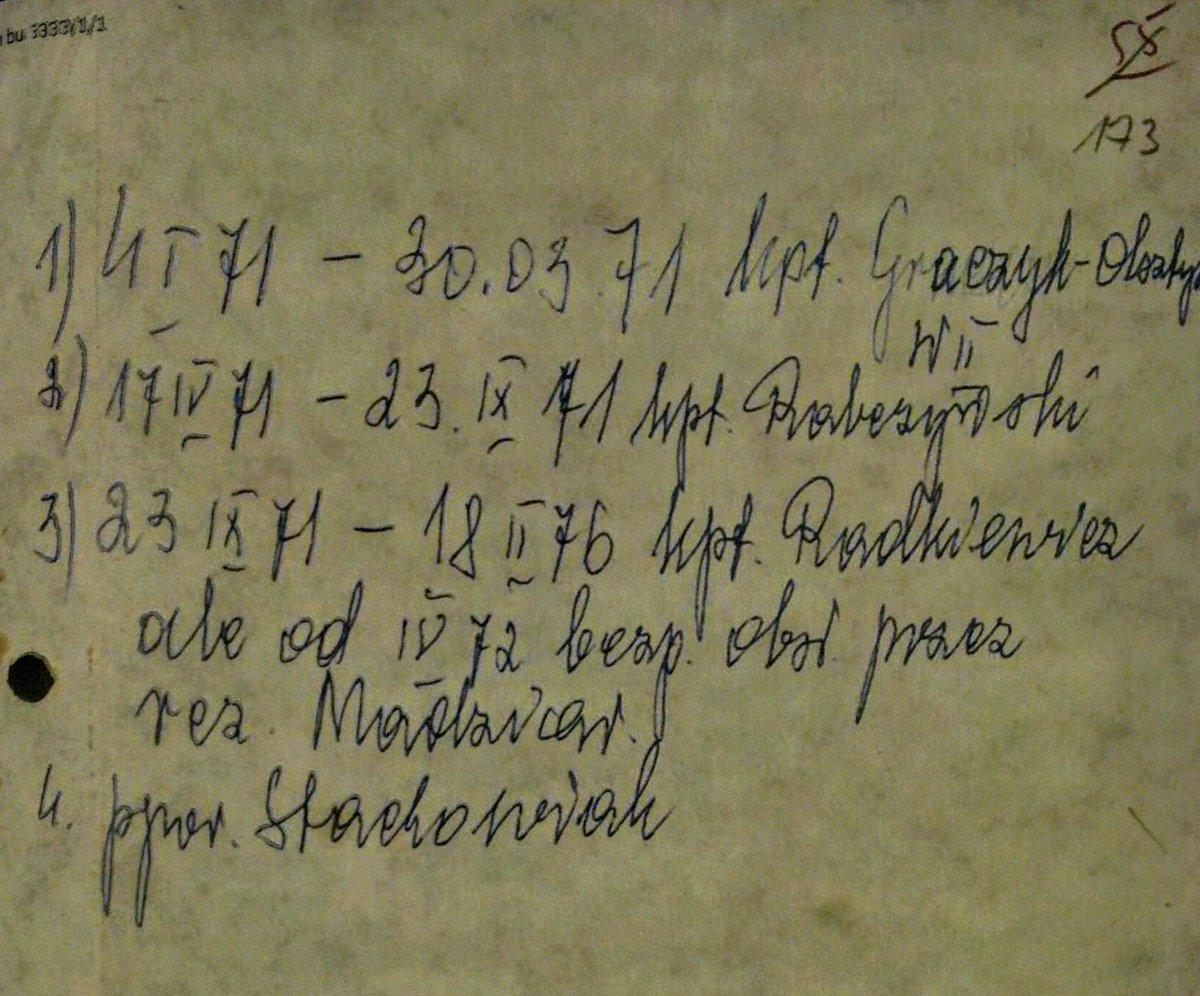 bu 3333/1/1
58
173
1) 4 I 71 – 30.03.71 kpt. Graczyk-Olszty
W II
2) 17 IV 71 – 23. IX 71 kpt. Rabczyński
3) 23 IX 71 – 18 II 76 kpt. Radkiewicz
ale od IV 72 bezp. obsł. przez
rez.
4. ppor. Stachowiak